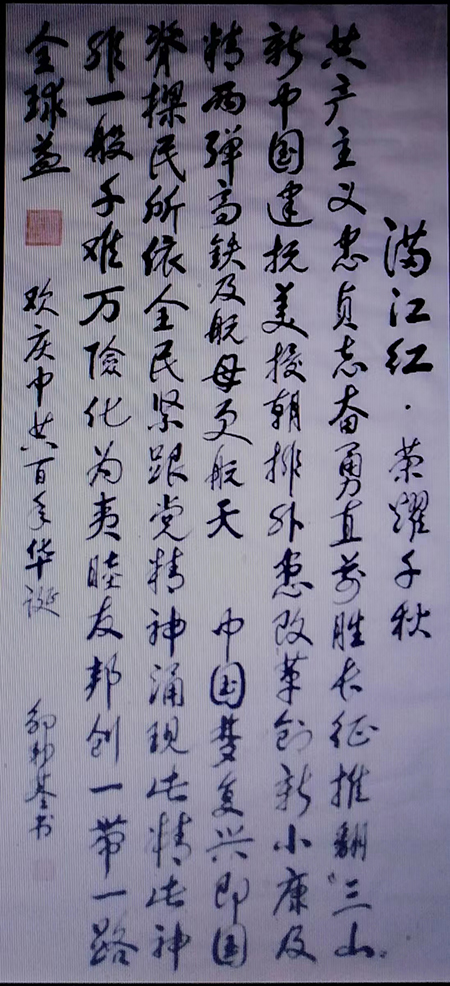 满江红·荣耀千秋
共产主义忠贞志奋勇直前胜长征推翻三山
新中国建抗美援朝排外患改革创新小康及
精两弹高铁及航母更航天 中国梦复兴即国
脊樑民所依全民紧跟党精神涌现此精此神
谁一般千难万險化为夷睦友邦创一带一路
全球益
欢庆中共百年华诞
基书